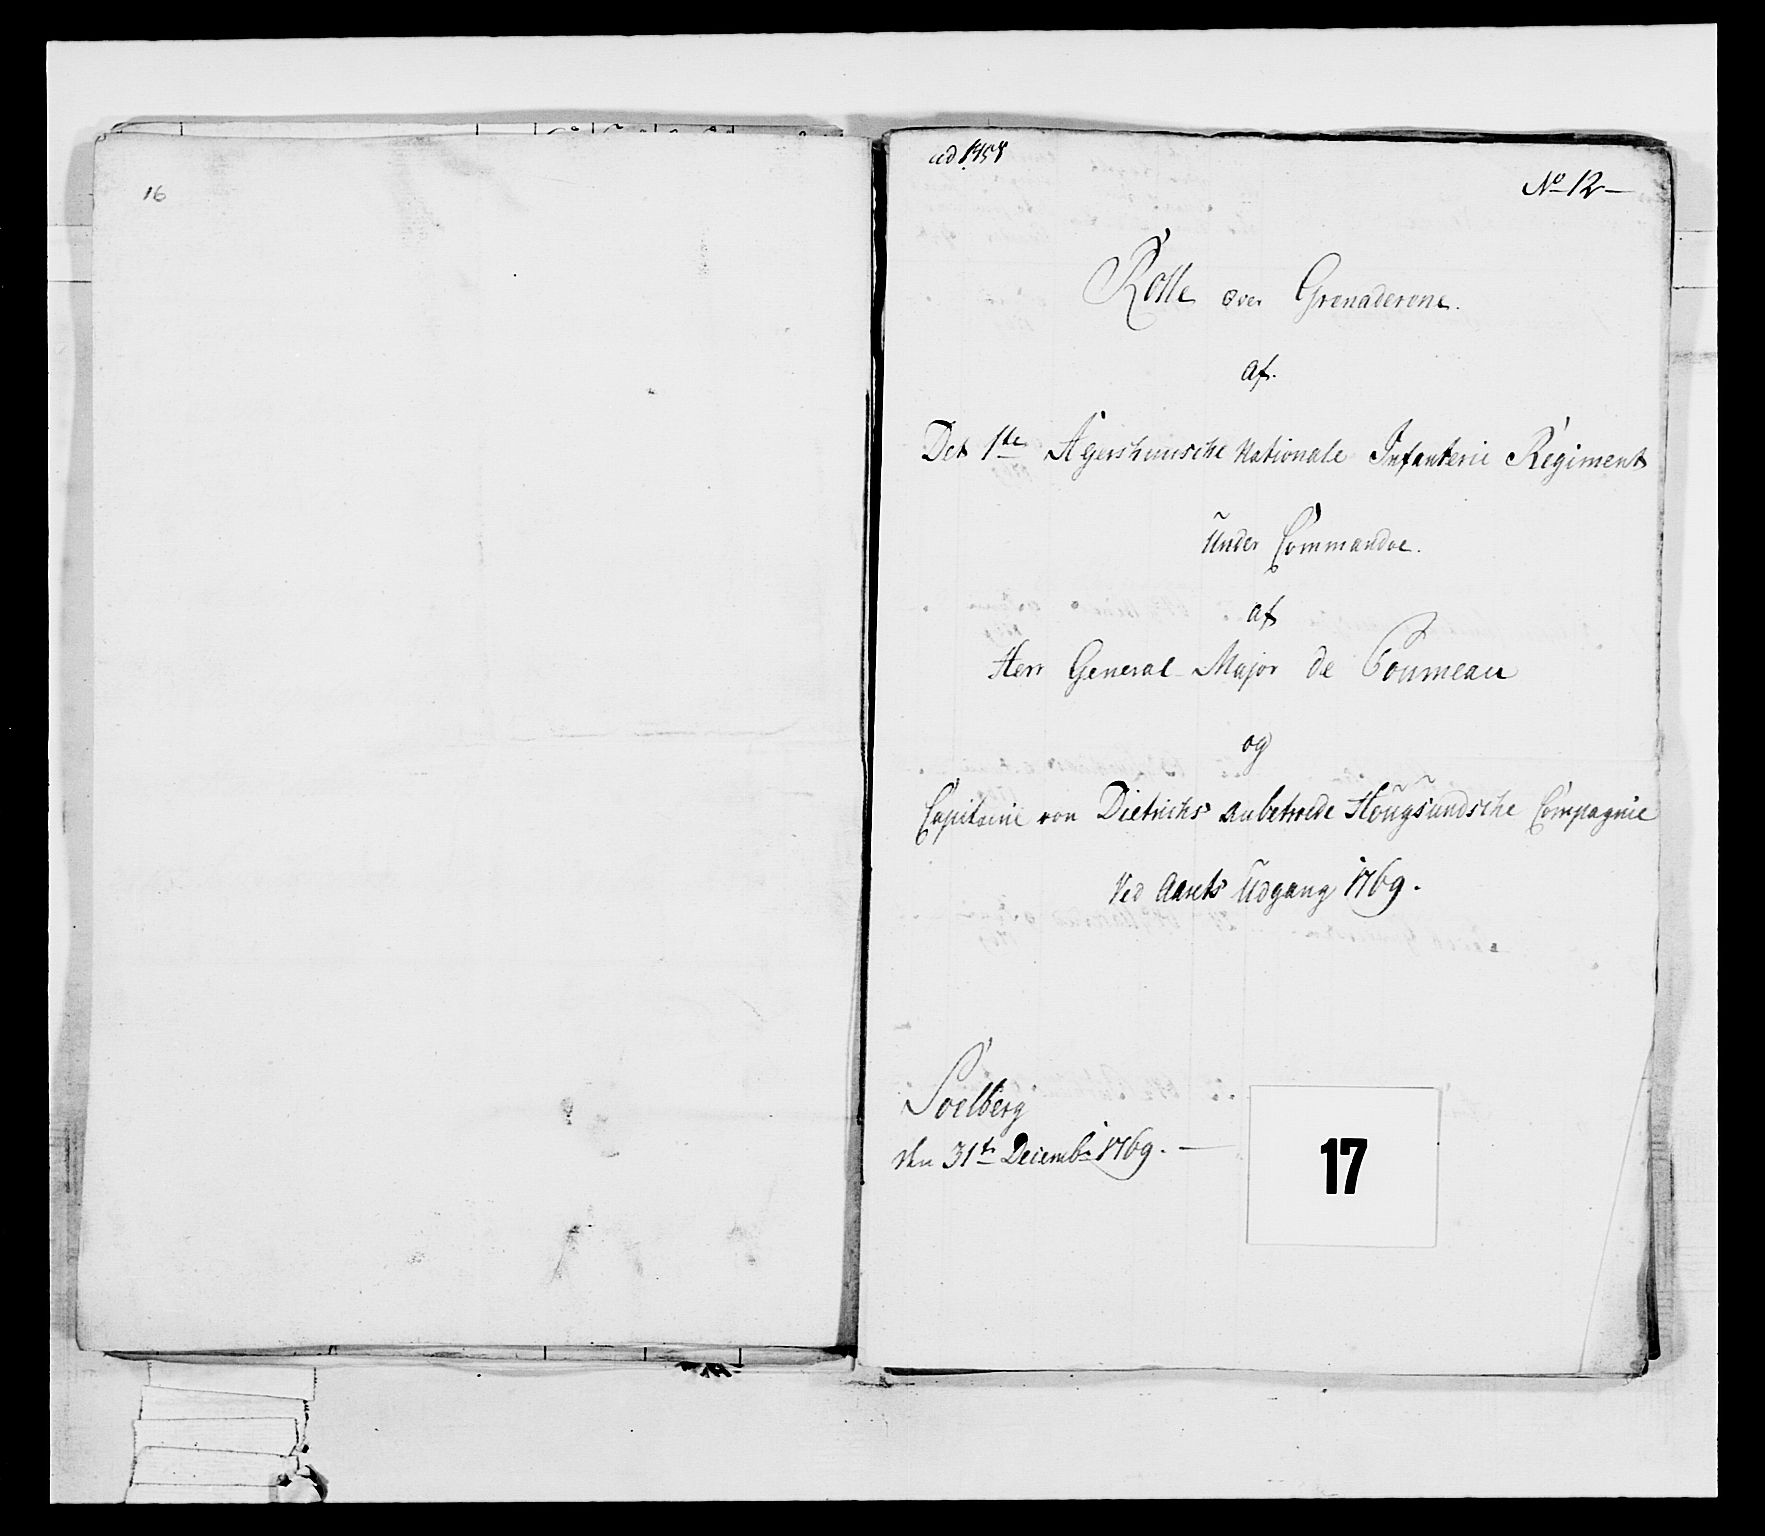 16
ad 1758
No 12
Rolle over Grenaderene.
af.
Det 1te Agershuusche Nationale Infanterie Regiment
Under Commandoe.
af
Herr General Major de Poumeau
og
Capitaine von Dietrichs anbetroede Hougsundsche Compagnie
Ved Aarets Udgang 1769.
Soelberg
den 31te Decembr 1769.
17